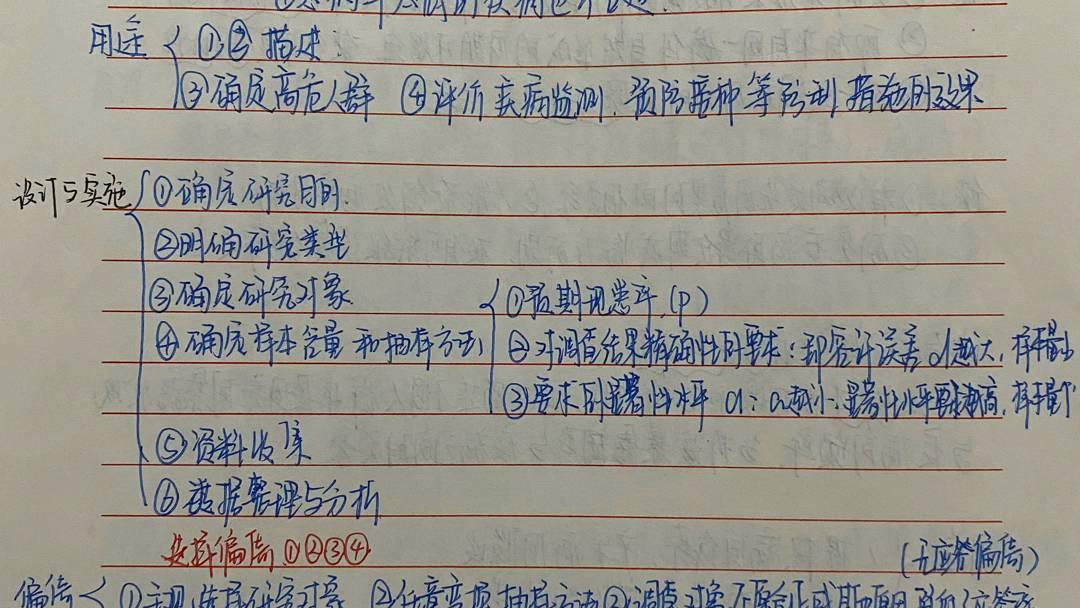 用途 ①② 描述
③确定高危人群 ④评价疾病监测、预防接种等防制措施的效果
设计与实施 ①确定研究目的
②明确研究类型
③确定研究对象
④确定样本含量和抽样方法
①预期现患率(P)
②对调查结果精确性的要求:即容许误差d越大,样本量小
③要求的显著性水平α:α越小:显著性水平要求越高,样本量
⑤资料收集
⑥数据整理与分析
选择偏倚 ①②③④
(无应答偏倚)
偏倚 ①主观选择研究对象 ②任意变换抽样方法 ③调查对象不